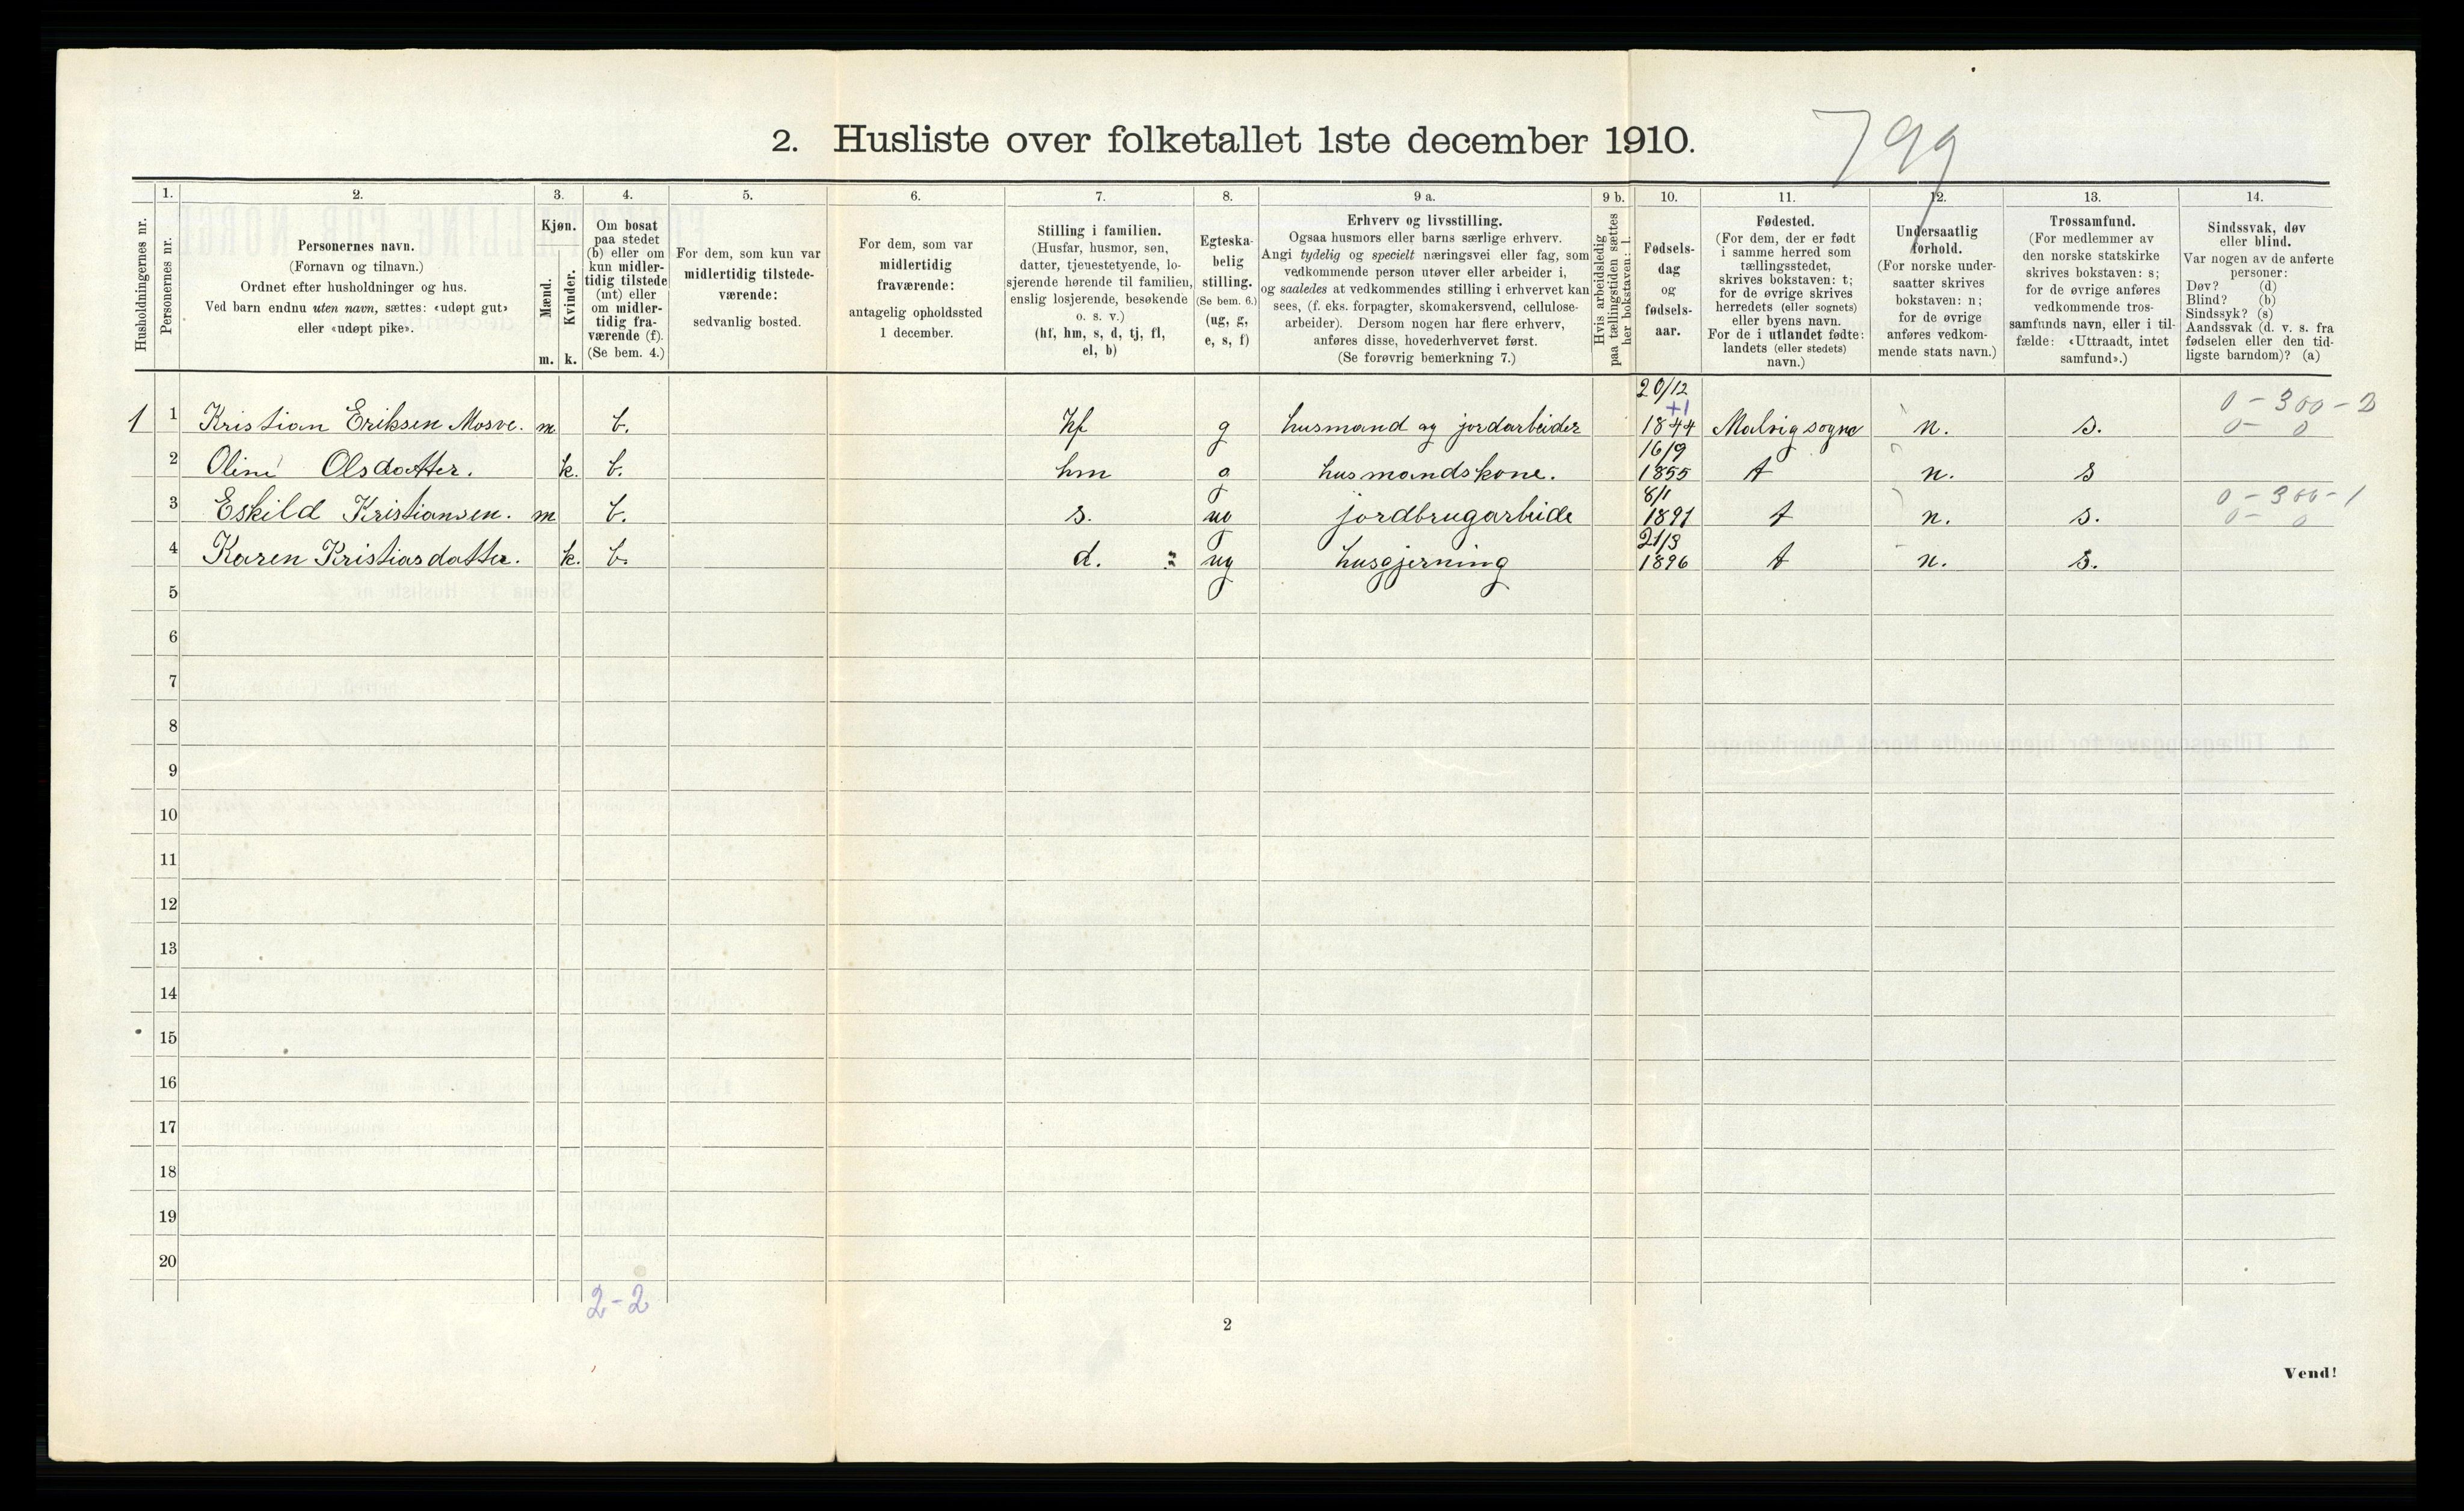 2. Husliste over folketallet 1ste december 1910.
799
1. 2. 3. 4. 5. 6. 7. 8. 9 a. 9 b. 10. 11. 12. 13. 14.
Husholdningernes nr.
Personernes nr.
Personernes navn.
(Fornavn og tilnavn.)
Ordnet efter husholdninger og hus.
Ved barn endnu uten navn, sættes: «udøpt gut»
eller «udøpt pike».
Kjøn.
Mænd.
Kvinder.
m. k.
Om bosat
paa stedet
(b) eller om
kun midler-
tidig tilstede
(mt) eller
om midler-
tidig fra-
værende (f).
(Se bem. 4.)
For dem, som kun var
midlertidig tilstede-
værende:
sedvanlig bosted.
For dem, som var
midlertidig
fraværende:
antagelig opholdssted
1 december.
Stilling i familien.
(Husfar, husmor, søn,
datter, tjenestetyende, lo-
sjerende hørende til familien,
enslig losjerende, besøkende
o. s. v.)
(hf, hm, s, d, tj, fl,
el, b)
Egteska-
belig
stilling.
(Se bem. 6.)
(ug, g,
e, s, f)
Erhverv og livsstilling.
Ogsaa husmors eller barns særlige erhverv.
Angi tydelig og specielt næringsvei eller fag, som
vedkommende person utøver eller arbeider i,
og saaledes at vedkommendes stilling i erhvervet kan
sees, (f. eks. forpagter, skomakersvend, cellulose-
arbeider). Dersom nogen har flere erhverv,
anføres disse, hovederhvervet først.
(Se forøvrig bemerkning 7.)
Hvis arbeidsledig
paa tællingstiden sættes
her bokstaven: l.
Fødsels-
dag
og
fødsels-
aar.
Fødested.
(For dem, der er født
i samme herred som
tællingsstedet,
skrives bokstaven: t;
for de øvrige skrives
herredets (eller sognets)
eller byens navn.
For de i utlandet fødte:
landets (eller stedets)
navn.)
Undersaatlig
forhold.
(For norske under-
saatter skrives
bokstaven: n;
for de øvrige
anføres vedkom-
mende stats navn.)
Trossamfund.
(For medlemmer av
den norske statskirke
skrives bokstaven: s;
for de øvrige anføres
vedkommende tros-
samfunds navn, eller i til-
fælde: «Uttraadt, intet
samfund».)
Sindssvak, døv
eller blind.
Var nogen av de anførte
personer:
Døv? (d)
Blind? (b)
Sindssyk? (s)
Aandssvak (d. v. s. fra
fødselen eller den tid-
ligste barndom)? (a)
20/12 +1 0-300-2
1 1 Kristian Eriksen Mosve. m b. hf g husmand og jordarbeider 1844 Malvig sogne n. s. 0- 0
16/9
2 Oline Olsdatter. k. b. hm g husmandskone. 1855 t n. s
8/1 0-300-1
3 Eskild Kristiansen. m b. s. ug jordbrugarbeide 1891 t n. s. 0- 0
21/3
4 Karen Kristiasdatter. k. b. d. ug husgjerning 1896 t n. s.
5
6
7
8
9
10
11
12
13
14
15
16
17
18
19
20
2-2
2
Vend!